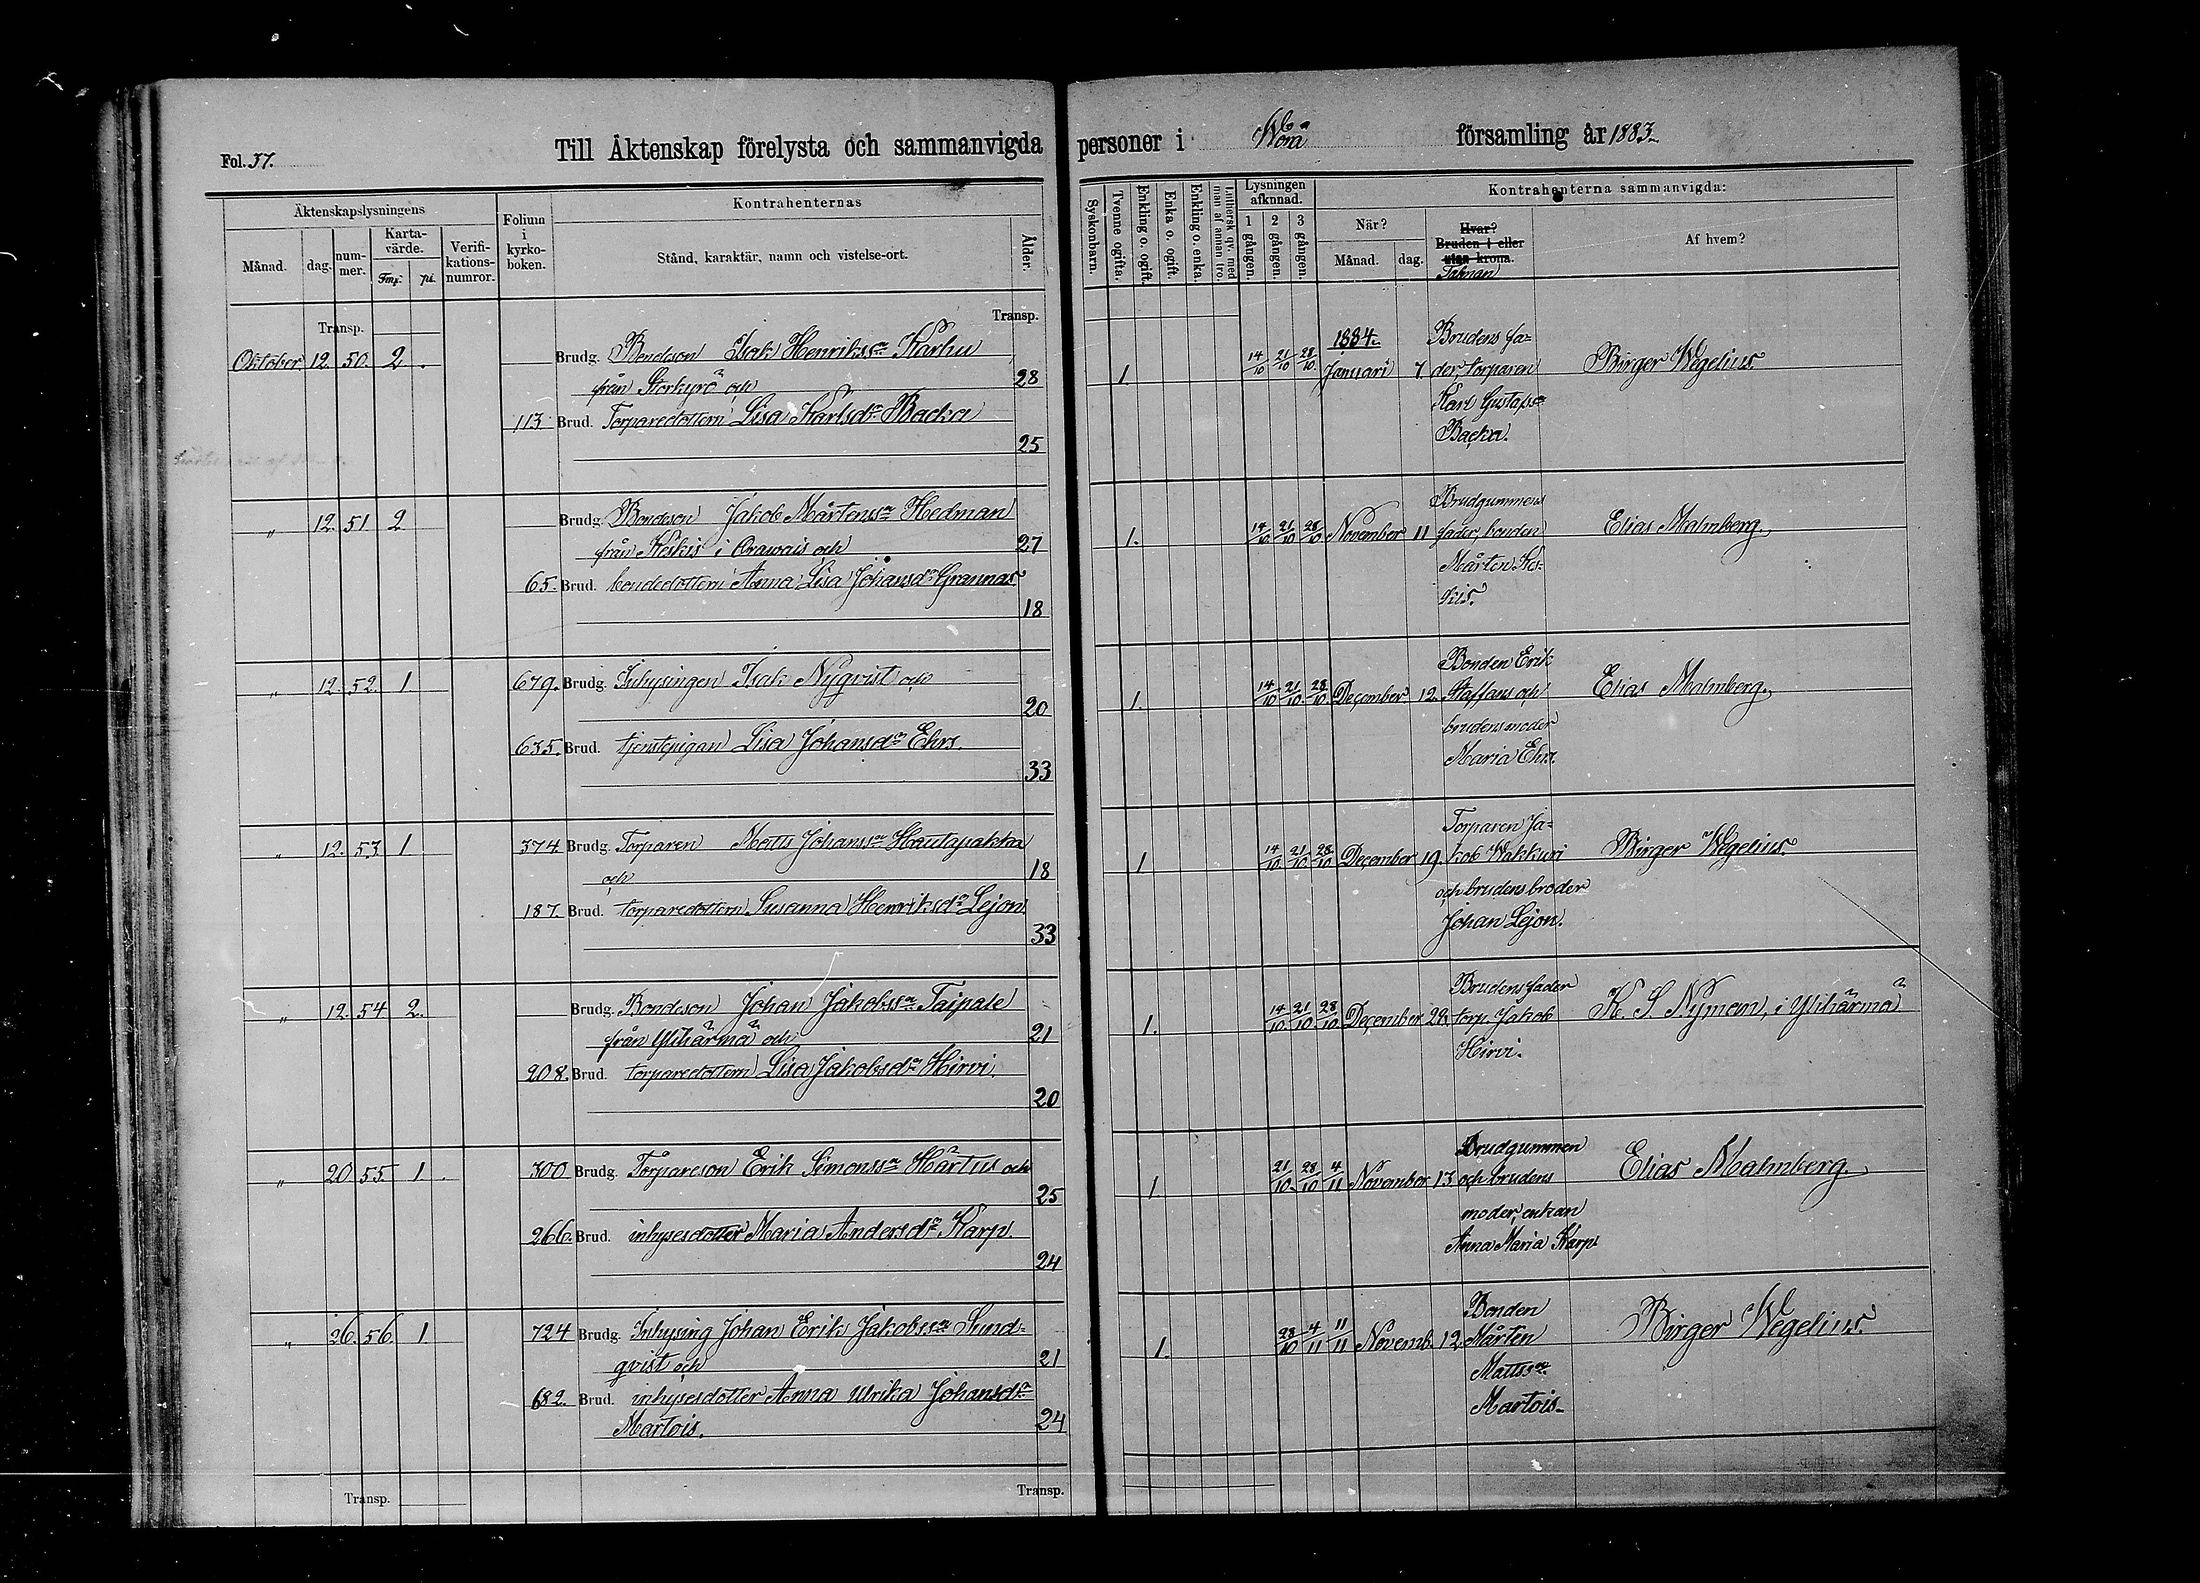 Fol. 37.
Till Äktenskap förelysta och sammanvigda personer i Wörå församling år 1883.
Äktenskapslysningens
Månad.
dag.
nummer.
Karta-
värde.
Fmf.
pi.
Verifi-
kations-
numror.
Folium
i
kyrko-
boken.
Kontrahenternas
Stånd, karaktär, namn och vistelse-ort.
Ålder.
Syskonbarn.
Tvenne ogifta.
Enkling o. ogift.
Enka o. ogift.
Enkling o. enka.
Luthersk qv. med
man af annan tro.
Lysningen
afknnad.
1 gången.
2 gången.
3 gången.
Kontrahenterna sammanvigda:
När?
Månad.
dag.
Hvar?
Bruden i eller
utan krona.
Taknan
Af hvem?
Transp.
Transp.
Oktober 12. 50. 2.
Brudg. Bondeson Isak Henrikss. Karhu
från Storkyrö och 28
113. Brud. Torparedottern Lisa Karlsd. Backa
25
1 14/10 21/10 28/10
1884.
Januari 7.
Brudens fa-
der, torparen
Karl Gustafss.
Backa.
Birger Wegelius.
" 12. 51 2
Brudg. Bondeson Jakob Mårtenss. Hedman
från Keskis i Orawais och 27
65. Brud. bondedottern Anna Lisa Johansd. Grannas
18
1. 14/10 21/10 28/10 November 11
Brudgummens
fader, bonden
Mårten Kes-
kis.
Elias Malmberg.
" 12. 52. 1.
679. Brudg. Inhysingen Isak Nyqvist och
20
635. Brud. tjenstepigan Lisa Johansd. Ehrs.
33
1. 14/10 21/10 28/10 December 12.
Bonden Erik
Staffans och
brudens moder
Maria Ehrs.
Elias Malmberg.
" 12. 53 1.
374. Brudg. Torparen Matts Johanss. Hautapakka
och 18
187. Brud. torparedottern Susanna Henriksd. Lejon.
33
1 14/10 21/10 28/10 December 19.
Torparen Ja-
kob Wakkuri
och brudens broder
Johan Lejon.
Birger Wegelius.
" 12. 54 2.
Brudg. Bondeson Johan Jakobss. Taipale
från Ylihärmä och 21
208. Brud. torparedottern Lisa Jakobsd. Hirvi.
20
1. 14/10 21/10 28/10 December
Brudens fader
torp. Jakob
Hirvi.
K. S. Nymem, i Ylihärmä
" 20 55. 1.
300 Brudg. Torpareson Erik Simonss. Härtus och
25
266. Brud. inhysesdotter Maria Andersd. Karp.
24
1. 21/10 28/10 4/11 November 13
Brudgummen
och brudens
moder, enkan
Anna Maria Karp.
Elias Malmberg.
" 26. 56. 1
724 Brudg. Inhysing Johan Erik Jakobss. Sund-
qvist och 21
682. Brud. inhysesdotter Anna Ulrika Johansd.
Martois. 24
1. 28/10 4/11 11/11 Novemb. 12
Bonden
Mårten
Mattss.
Martois.
Birger Wegelius.
Transp.
Transp.